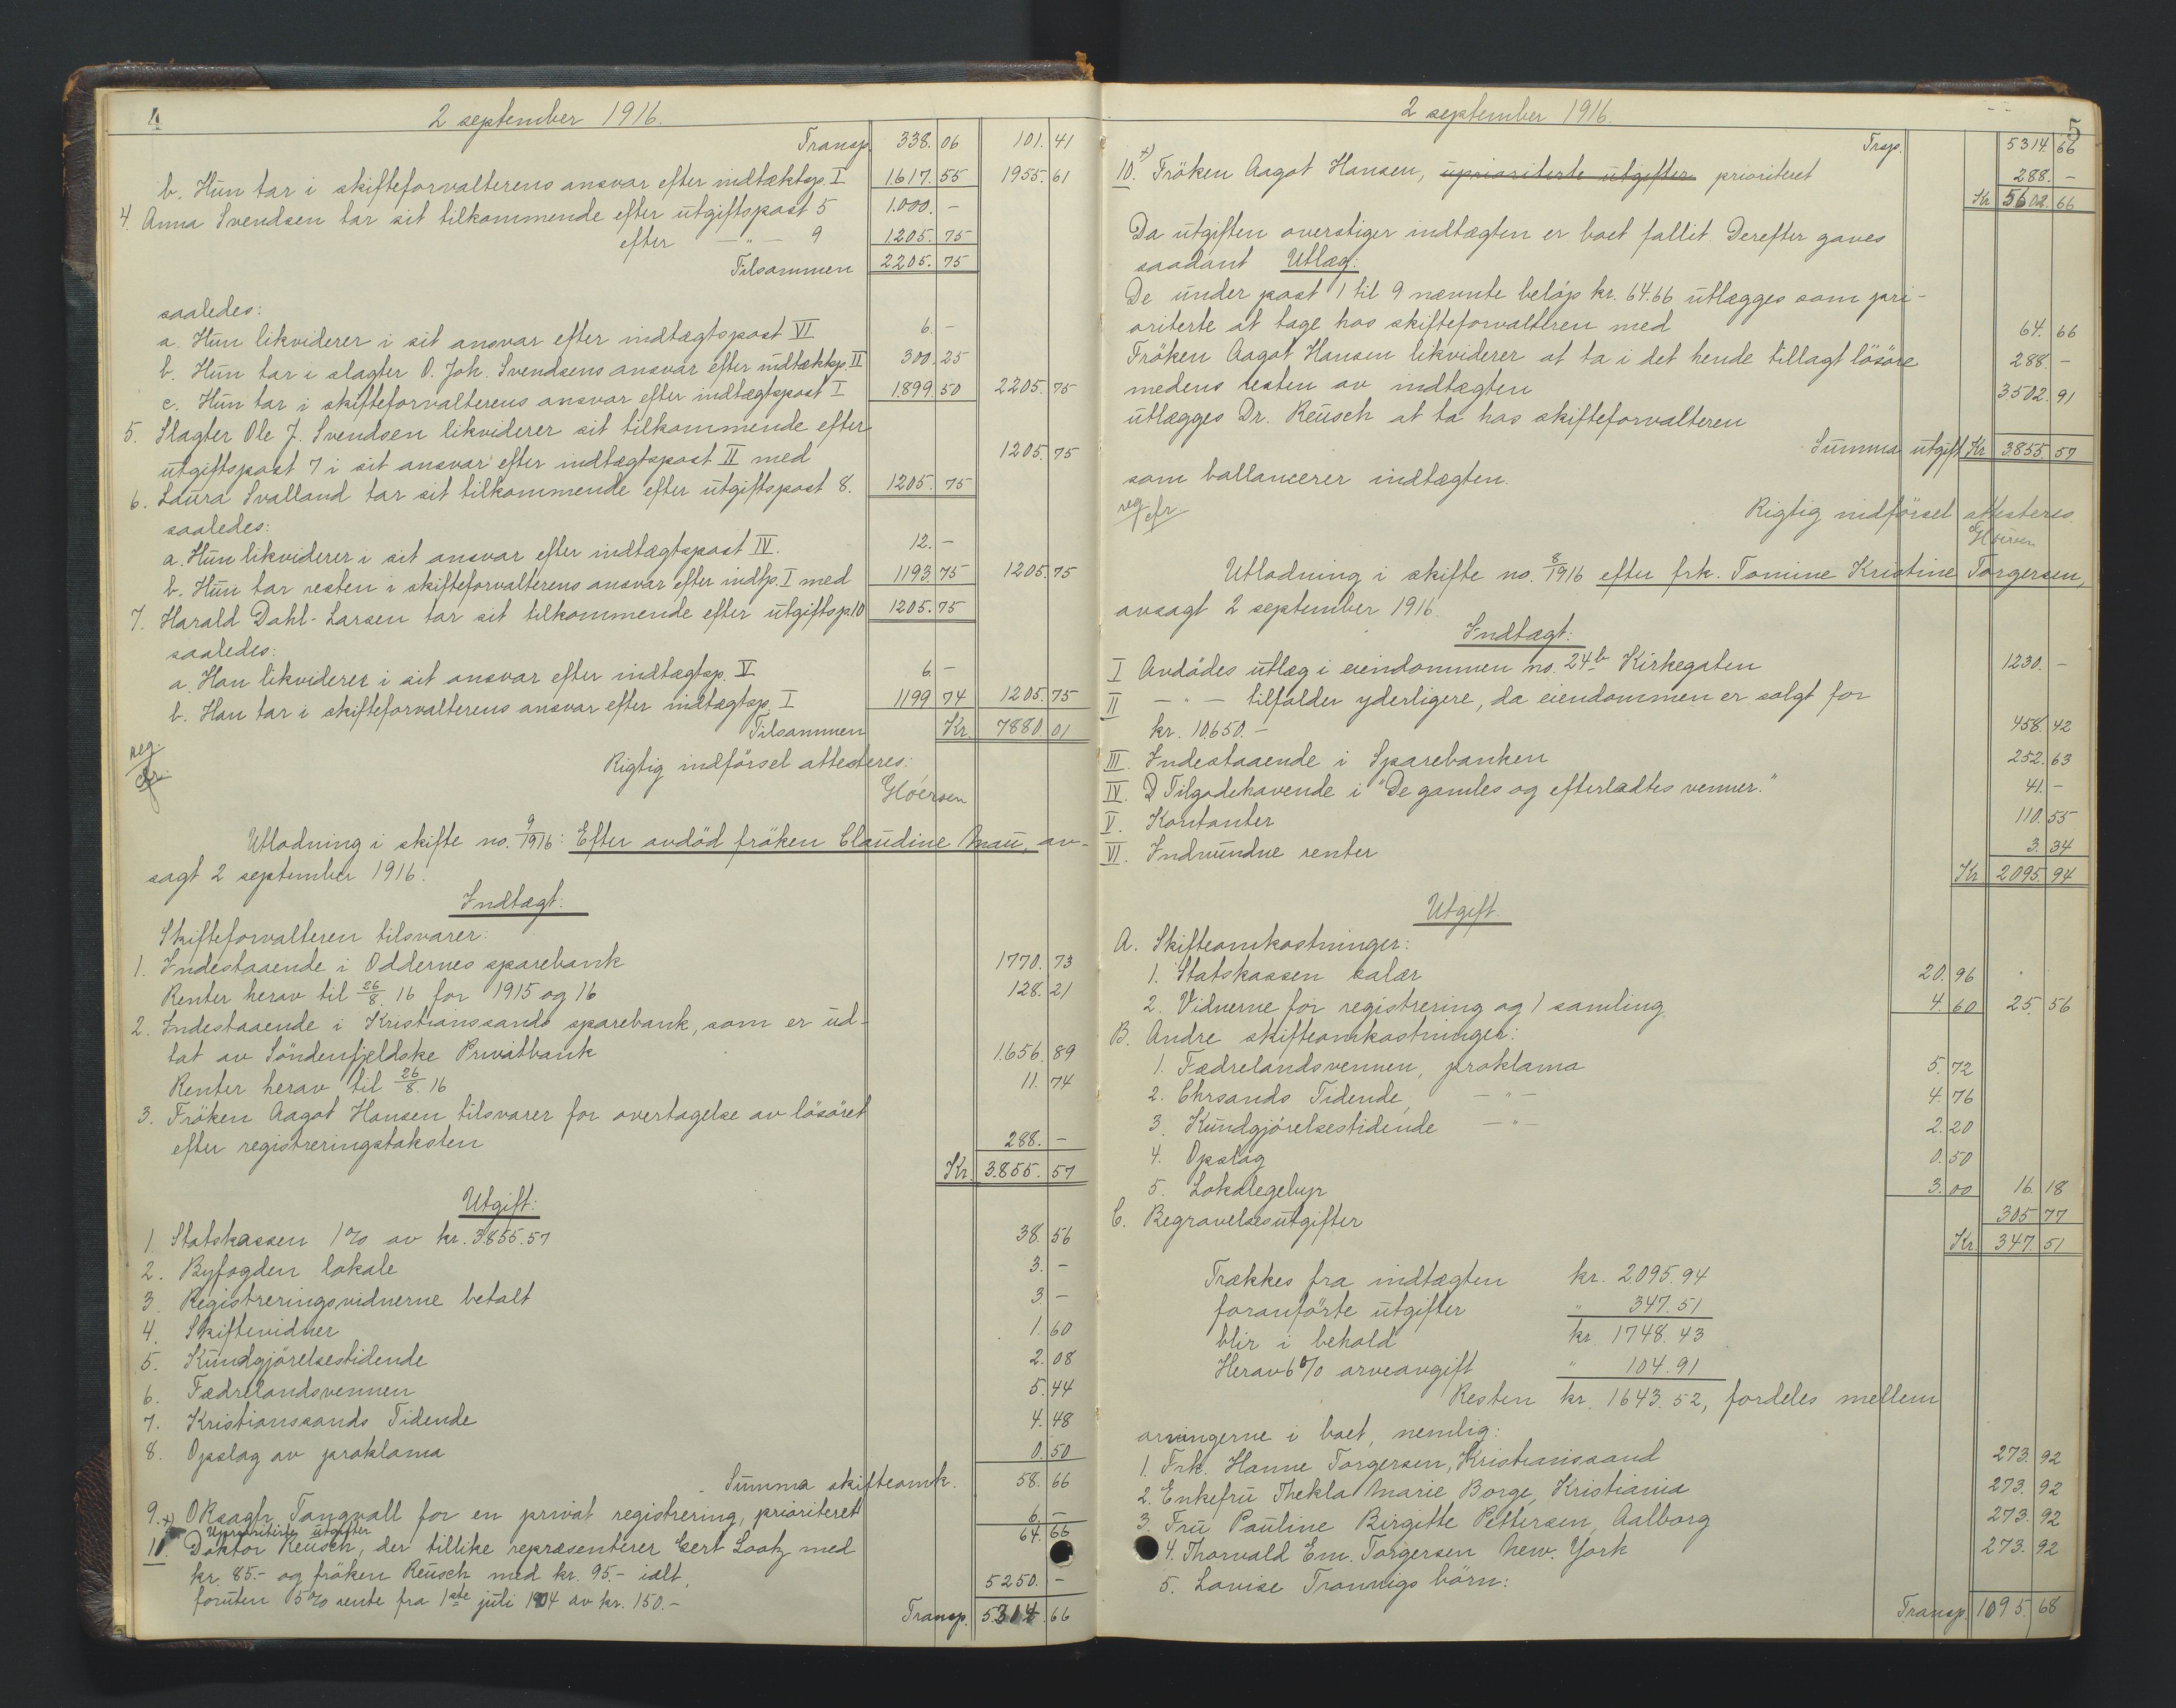 4
2 september 1916.
Transp. 338.06 101.41
b. Hun tar i skifteforvalterens ansvar efter indtæktsp. I 1.617.55 1955.61
4. Anna Svendsen tar sit tilkommende efter utgiftspost 5 1.000.-
efter -"- 9 1205.75
Tilsammen 2205.75
saaledes:
a. Hun likviderer i sit ansvar efter indtægtspost VI 6.-
b. Hun tar i slagter O. Joh. Svendsens ansvar efter indtæktsp. II 300.25
c. Hun tar i skifteforvalterens ansvar efter indtægtspost I 1899.50 2205.75
5. Slagter Ole J. Svendsen likviderer sit tilkommende efter
utgiftspost 7 i sit ansvar efter indtægtspost II med 1205.75
6. Laura Svalland tar sit tilkommende efter utgiftspost 8. 1205.75
saaledes:
a. Hun likviderer i sit ansvar efter indtægtspost IV. 12.-
b. Hun tar resten i skifteforvalterens ansvar efter indtp. I med 1193.75 1205.75
7. Harald Dahl-Larsen tar sit tilkommende efter utgiftsp. 10 1205.75
saaledes:
a. Han likviderer i sit ansvar efter indtægtsp. V 6.-
b. Han tar i skifteforvalterens ansvar efter indtægtsp. I 1199.74 1205.75
Tilsammen Kr. 7880.01
reg.
cfr
Rigtig indförsel attesteres:
Utlodning i skifte no. 9/1916: Efter avdöd fröken Claudine Mau, av-
sagt 2 september 1916.
Indtægt:
Skifteforvalteren tilsvarer:
1. Indestaaende i Oddernes sparebank 1770.73
Renter herav til 26/8.16 for 1915 og 16 128.21
2. Indestaaende i Kristianssands sparebank, som er ud-
tat av Söndenfjeldske Privatbank 1.656.89
Renter herav til 26/8.16 11.74
3. Fröken Aagot Hansen tilsvarer for overtagelse av lösöret
efter registreringstaksten 288.-
Kr. 3.855.57
Utgift:
1. Statskassen 1% av kr. 3855.57 38.56
2. Byfogden lokale 3.-
3. Registreringsvidnerne betalt 3.-
4. Skiftevidner 1.60
5. Kundgjörelsestidende 2.08
6. Fædrelandsvennen 5.44
7. Kristianssands Tidende 4.48
8. Opslag av proklama 0.50
Summa skifteomk. 58.66
9. x) ORsagfr. Tangvall for en privat registrering, prioriteret 6.-
64.66
Uprioriterte utgifter
10. Doktor Reusch, der tillike repræsenterer Gert Lootz med
kr. 85.- og fröken Reusch med kr. 95.- ialt, 5250.-
foruten 5% rente fra 1ste juli 1904 av kr. 150.-
Transp. 5.314.66
5
2 september 1916.
Trsp. 5314.66
10. x) Fröken Aagot Hansen, uprioriterte utgifter prioriteret 288.-
Kr 5602.66
Da utgiften overstiger indtægten er boet fallit. Derefter gaves
saadant Utlæg:
De under post 1 til 9 nævnte belöp kr. 64.66 utlægges som pri-
oriterte at tage hos skifteforvalteren med 64.66
Fröken Aagot Hansen likviderer at ta i det hende tillagt lösöre 288.-
medens resten av indtægten 3502.91
utlægges Dr. Reusch at ta hos skifteforvalteren
Summa utgift Kr 3855.57
som ballancerer indtægten.
reg.
cfr.
Rigtig indförsel attesteres.
Utlodning i skifte no. 8/1916 efter frk. Tomine Kristine Torgersen,
avsagt 2 september 1916.
Indtægt:
I Avdödes utlæg i eiendommen no. 24b Kirkegaten 1230.-
II -"- tilfalder yderligere, da eiendommen er solgt for
kr. 10.650.- 458.42
III. Indestaaende i Sparebanken 252.63
IV. Tilgodehavende i "De gamles og efterladtes venner." 41.-
V. Kontanter 110.55
VI. Indvundne renter 3.34
Kr 2095.94
Utgift.
A. Skifteomkostninger:
1. Statskassen salær 20.96
2. Vidnerne for registrering og 1 samling 4.60 25.56
B. Andre skifteomkostninger:
1. Fædrelandsvennen, proklama 5.72
2. Chrsands Tidende, -"- 4.76
3. Kundgjörelsestidende -"- 2.20
4. Opslag 0.50
5. Lokalegebyr 3.00 16.18
C. Begravelsesutgifter 305.77
Kr 347.51
Trækkes fra indtægten kr. 2095.94
foranförte utgifter " 347.51
blir i behold kr. 1748.43
Herav 6% arveavgift " 104.91
Resten kr. 1643.52, fordeles mellem
arvingerne i boet, nemlig:
1. Frk. Hanne Torgersen, Kristianssand 273.92
2. Enkefru Thekla Marie Borge, Kristiania 273.92
3. Fru Pauline Birgitte Pettersen, Aalborg 273.92
4. Thorvald Em. Torgersen New. York 273.92
5. Lovise Trannigs börn:
Transp. 1095.68